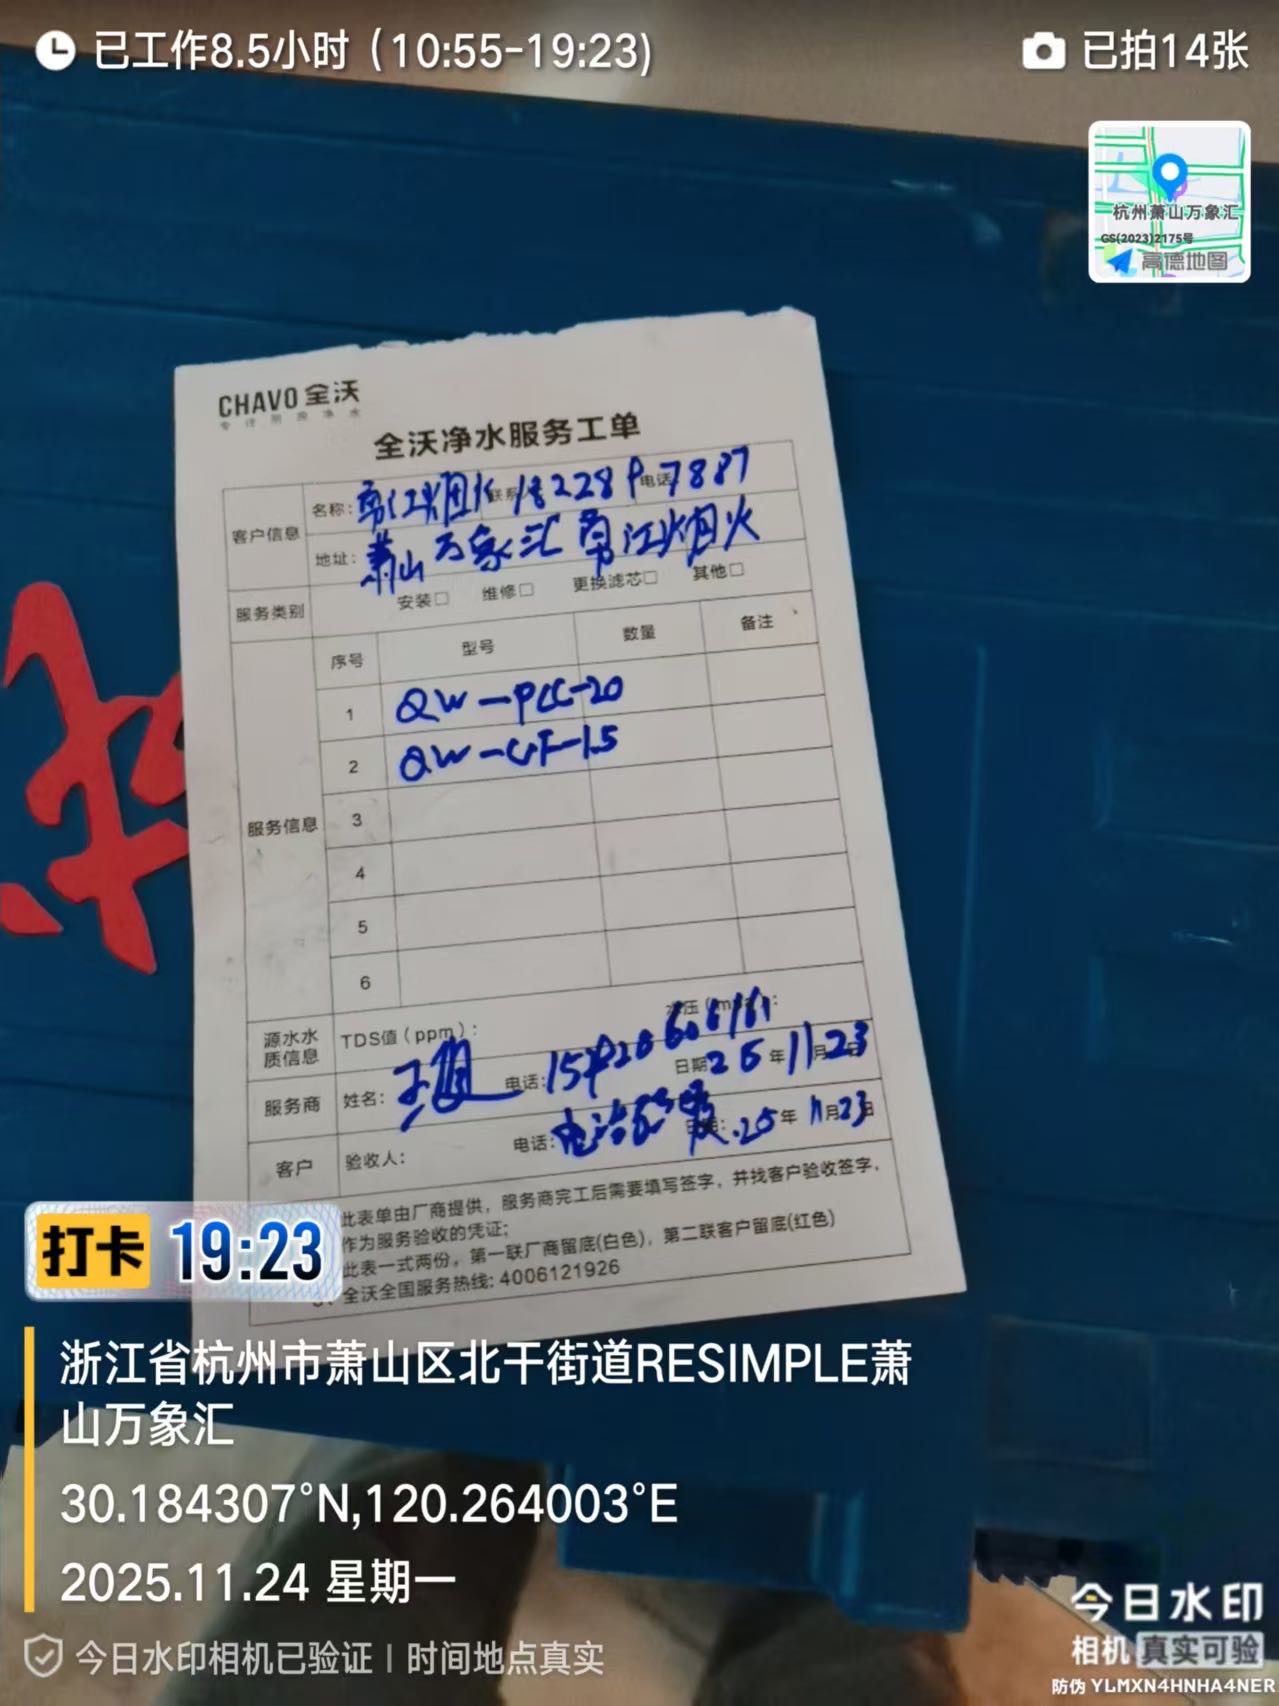 已工作8.5小时（10:55-19:23)
已拍14张
杭州萧山万象汇
GS(2023)2175号
高德地图
CHAVO 全沃
全沃净水服务工单
客户信息
名称: 联系人 电话 7887
地址: 萧山万象汇 江烟火
服务类别
安装□ 维修□ 更换滤芯□ 其他□
服务信息
序号 型号 数量 备注
1 QW-PCC-20
2 QW-CF-1.5
3
4
5
6
源水水质信息
TDS值（ppm）: 水压（mpa）:
服务商 姓名: 电话: 日期 25年11月23日
客户 验收人: 电话: 日期: 25年11月23日
此表单由厂商提供，服务商完工后需要填写签字，并找客户验收签字，
作为服务验收的凭证;
此表一式两份，第一联厂商留底(白色)，第二联客户留底(红色)
全沃全国服务热线: 4006121926
打卡 19:23
浙江省杭州市萧山区北干街道RESIMPLE萧
山万象汇
30.184307°N,120.264003°E
2025.11.24 星期一
今日水印相机已验证 | 时间地点真实
今日水印
相机 真实可验
防伪 YLMXN4HNHA4NER